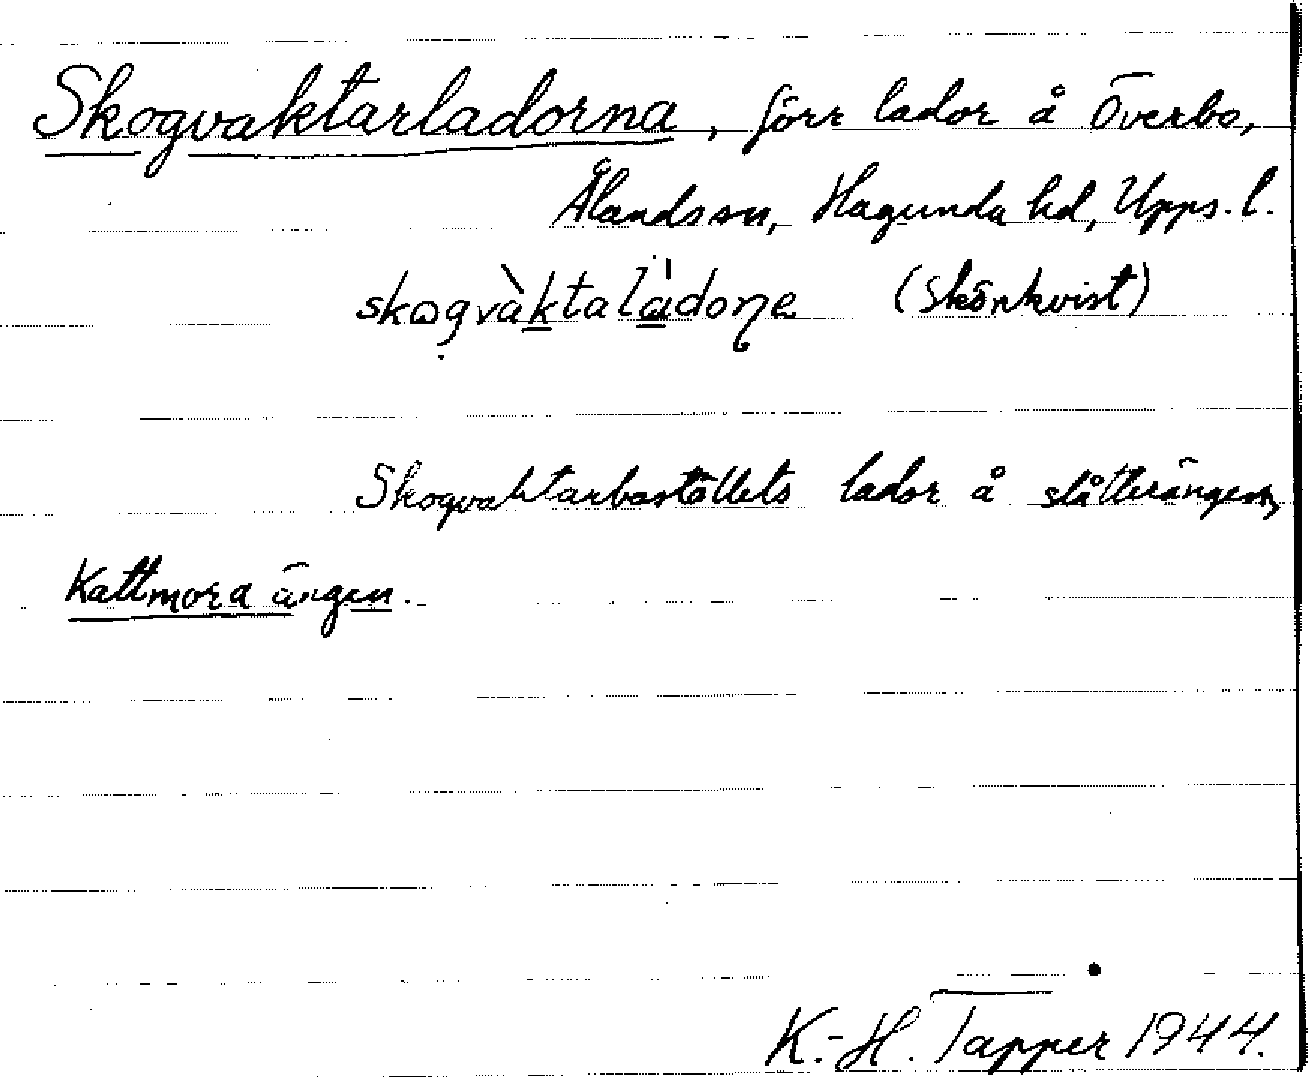 Skogvaktarladorna, förr lador å Överbo,
Ålands sn, Hagunda hd, Upps. l.
skogvàktalàdoṇe (Skönkvist)
Skogvaktarboställets lador å slåtterängen,
Kattmora ängen.
K.-H. Tapper 1944.